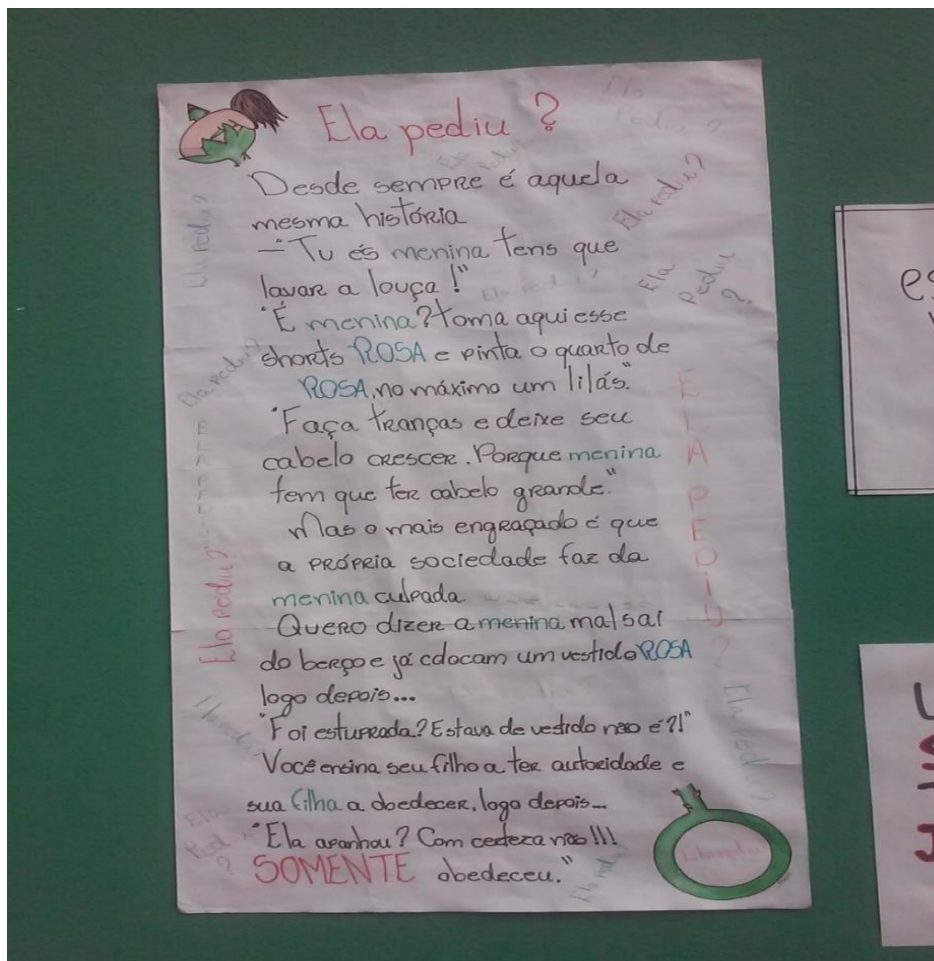 Ela pediu ?
Desde sempre é aquela
mesma história
- "Tu és menina tens que
lavar a louça !"
"É menina? toma aqui esse
shorts ROSA e pinta o quarto de
ROSA, no máximo um lilás."
"Faça tranças e deixe seu
cabelo crescer. Porque menina
tem que ter cabelo grande."
Mas o mais engraçado é que
a própria sociedade faz da
menina culpada.
Quero dizer a menina mal sai
do berço e já colocam um vestido ROSA
logo depois...
"Foi estuprada? Estava de vestido não é?!"
Você ensina seu filho a ter autoridade e
sua filha a obedecer, logo depois...
"Ela apanhou? Com certeza não!!!
SOMENTE obedeceu."
Ela
Pediu ?
Ela pediu?
Ela
pediu
?
Ela pediu?
Ela pediu?
Ela pediu?
Ela pediu?
ELA PEDIU?
Ela pediu?
Ela pediu?
Ela
Ela pediu
es
J